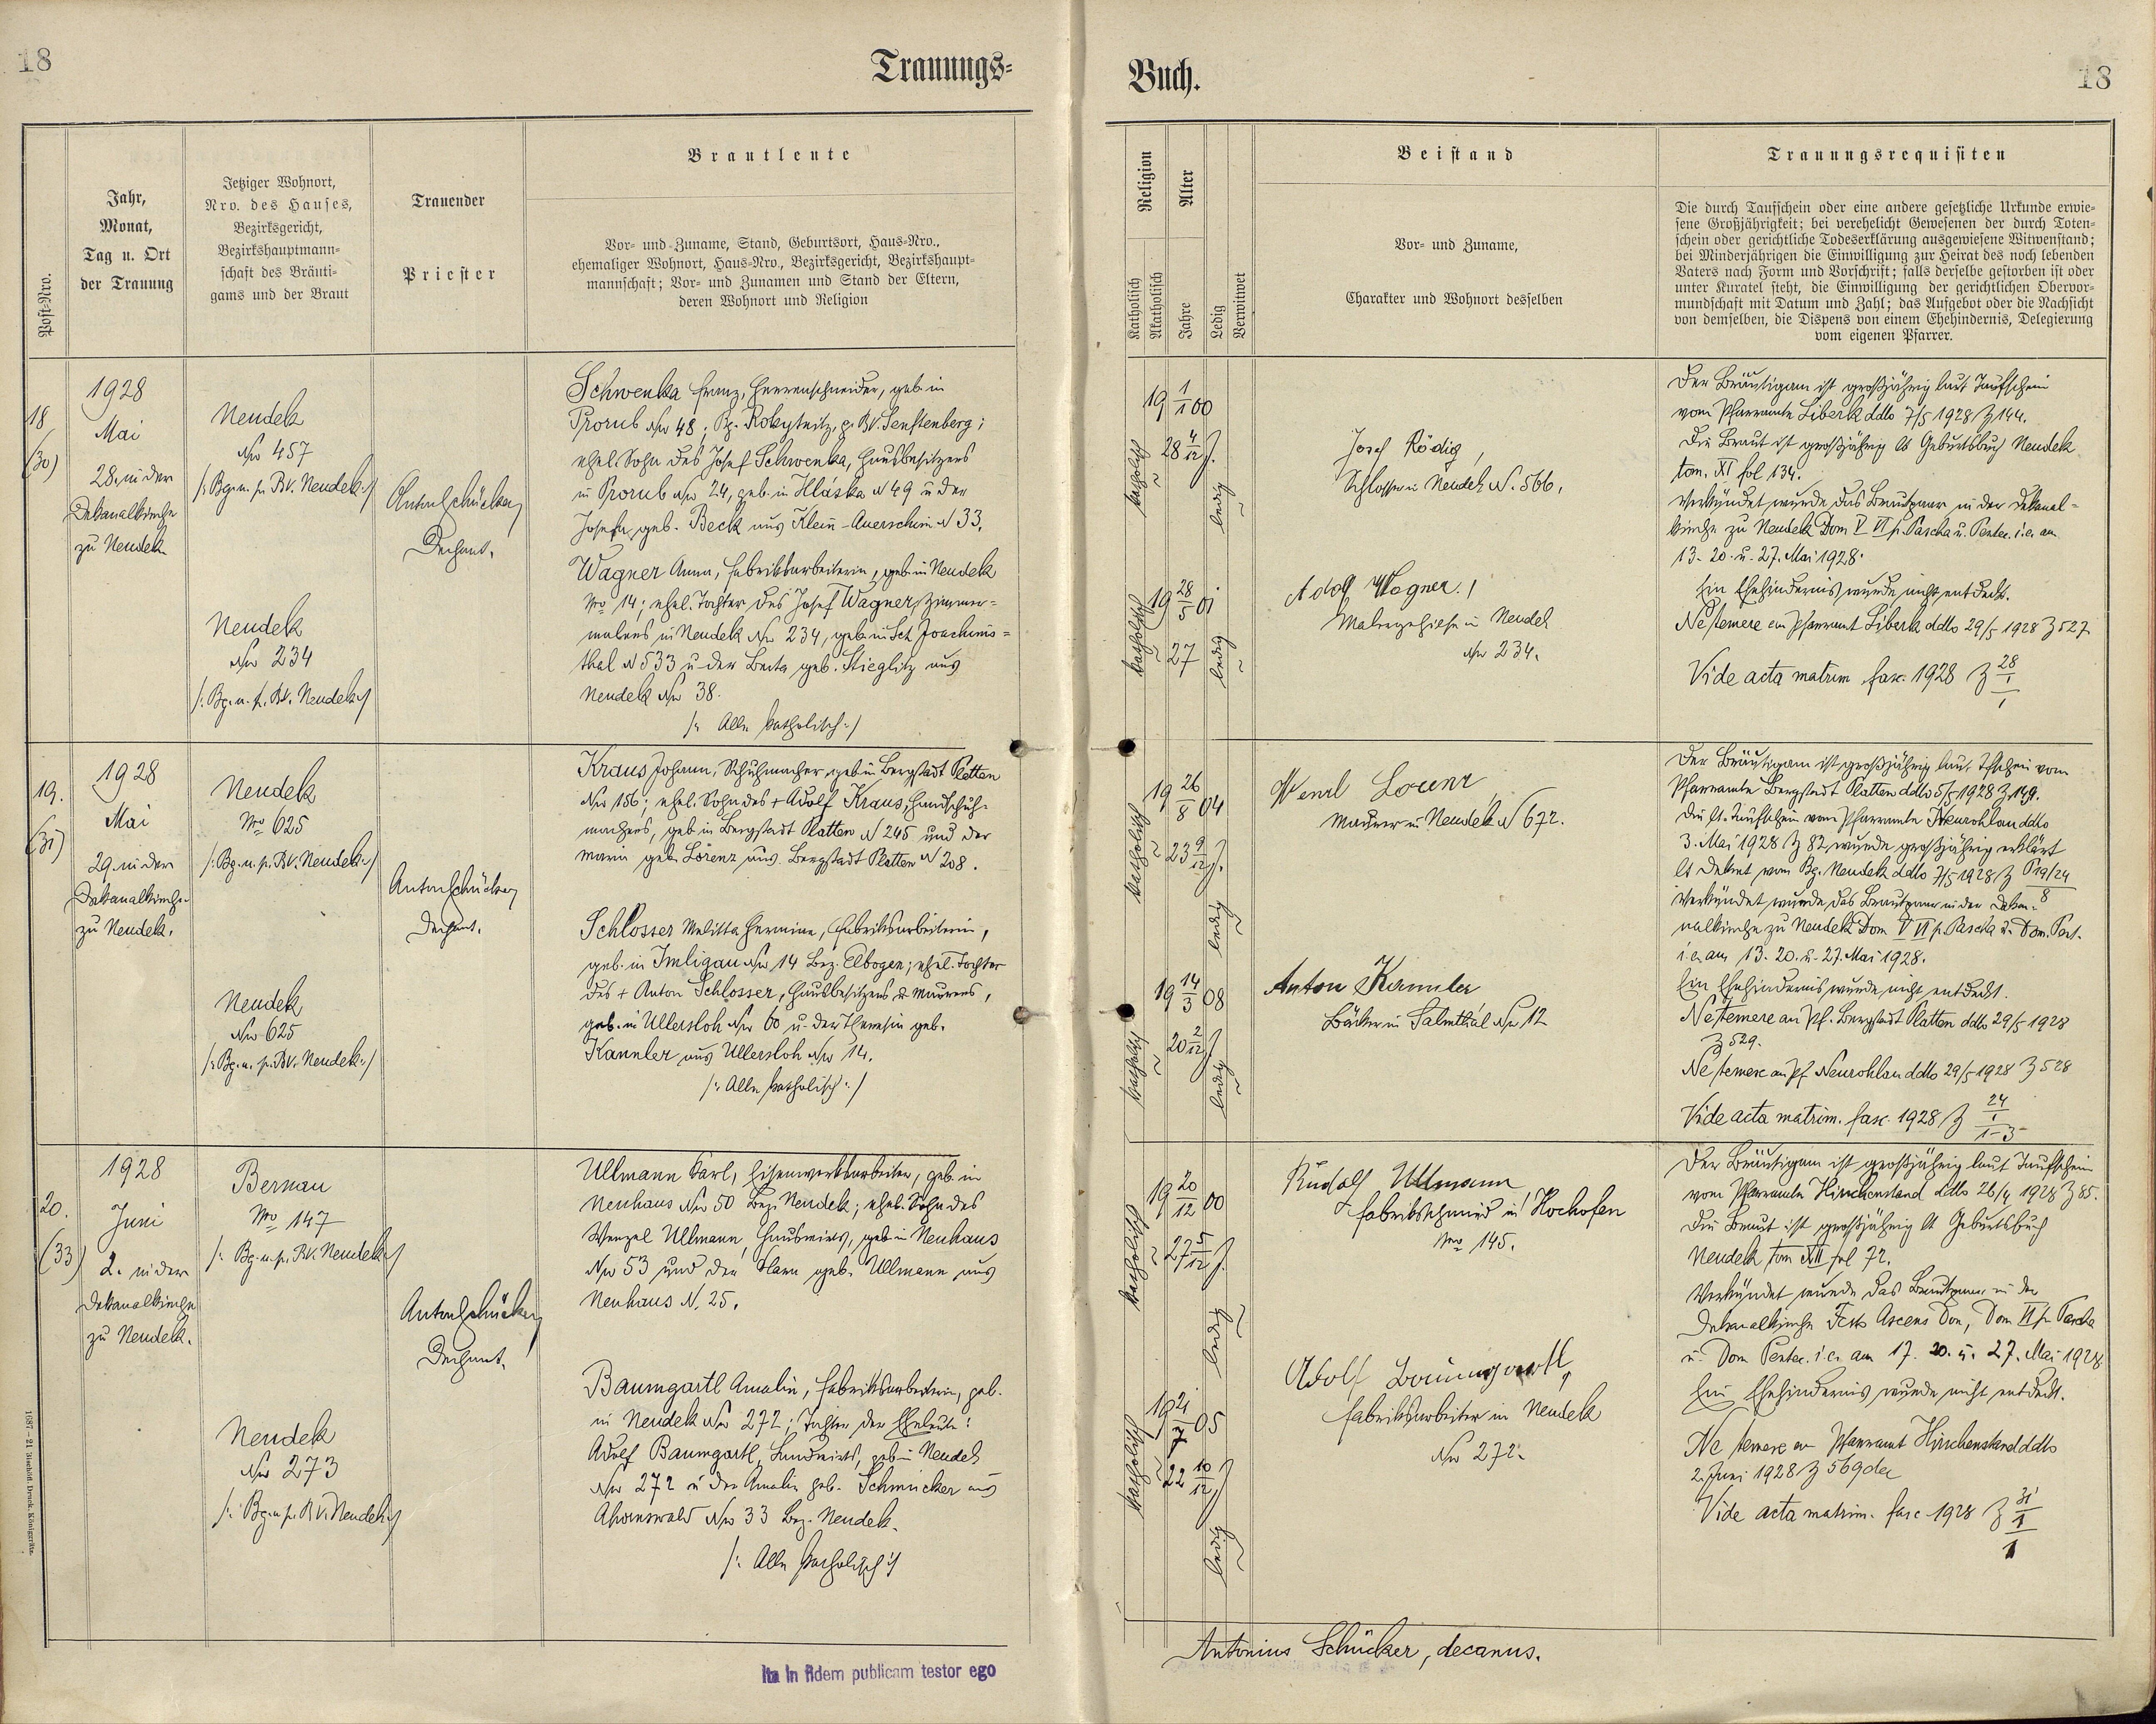 18
Trauungs-
Post-Nro.
Jahr,
Monat,
Tag u. Ort
der Trauung
Jetziger Wohnort,
Nro. des Hauses,
Bezirksgericht,
Bezirkshauptmann-
schaft des Bräuti-
gams und der Braut
Trauender
Priester
Brautleute
Vor- und Zuname, Stand, Geburtsort, Haus-Nro.,
ehemaliger Wohnort, Haus-Nro., Bezirksgericht, Bezirkshaupt-
mannschaft; Vor- und Zunamen und Stand der Eltern,
deren Wohnort und Religion
18
(30)
1928
Mai
28. in der
Dekanalkirche
zu Neudek
Neudek
Nro 457
/: Bg. u. p. BV. Neudek :/
Neudek
Nro 234
/: Bg. u. p. BV. Neudek :/
Anton Schücker,
Dechant.
Schwenka Franz, Herrenschneider, geb. in
Prorub Nro 48; Bg. Rokytnitz, p. BV. Senftenberg;
ehel. Sohn des Josef Schwenka, Hausbesitzers
in Prorub Nro 24, geb. in Hláska N 49 u der
Josefa, geb. Beck aus Klein-Auerschim N 33.
Wagner Anna, Fabriksarbeiterin, geb. in Neudek
Nro 14; ehel. Tochter des Josef Wagner, Zimmer-
malers in Neudek Nro 234, geb. in Sct Joachims-
thal N 533 u der Berta geb. Stieglitz aus
Neudek Nro 38.
/: Alle katholisch :/
19.
(31)
1928
Mai
29. in der
Dekanalkirche
zu Neudek.
Neudek
Nro 625
/: Bg. u. p. BV. Neudek :/
Neudek
Nro 625
/: Bg. u. p. BV. Neudek :/
Anton Schücker,
Dechant.
Kraus Johann, Schuhmacher, geb in Bergstadt Platten
Nro 156; ehel. Sohn des + Adolf Kraus, Handschuh-
machers, geb in Bergstadt Platten N 245 und der
Maria geb. Lorenz aus Bergstadt Platten N 208.
Schlosser Melitta Hermine, Fabriksarbeiterin,
geb. in Imligau Nro 14 Bez. Elbogen; ehel. Tochter
des + Anton Schlosser, Hausbesitzers u Maurers,
geb. in Ullersloh Nro 60 u. der Theresia geb.
Kannler aus Ullersloh Nro 14.
/: Alle katholisch :/
20.
(33)
1928
Juni
2. in der
Dekanalkirche
zu Neudek.
Bernau
Nro 147
/: Bg. u. p. BV. Neudek :/
Neudek
Nro 273
/: Bg. u. p. BV. Neudek :/
Anton Schücker,
Dechant.
Ullmann Karl, Eisenwerksarbeiter, geb. in
Neuhaus Nro 50 Bez. Neudek; ehel. Sohn des
Wenzel Ullmann, Hausmirts, geb. in Neuhaus
Nro 53 und der Klara geb. Ullmann aus
Neuhaus N. 25.
Baumgartl Amalie, Fabriksarbeiterin, geb.
in Neudek Nro 272; Tochter der Eheleute:
Adolf Baumgartl, Landwirts, geb in Neudek
Nro 272 u der Amalie geb. Schmucker aus
Ahornswald Nro 33 Bez. Neudek.
/: Alle katholisch :/
1687–21 Bischöfl. Druck. Königgrätz.
Ita in fidem publicam testor ego
Buch.
18
Religion
Alter
Katholisch
Akatholisch
Jahre
Ledig
Verwitwet
Beistand
Vor- und Zuname,
Charakter und Wohnort desselben
Trauungsrequisiten
Die durch Taufschein oder eine andere gesetzliche Urkunde erwie-
sene Großjährigkeit; bei verehelicht Gewesenen der durch Toten-
schein oder gerichtliche Todeserklärung ausgewiesene Witwenstand;
bei Minderjährigen die Einwilligung zur Heirat des noch lebenden
Vaters nach Form und Vorschrift; falls derselbe gestorben ist oder
unter Kuratel steht, die Einwilligung der gerichtlichen Obervor-
mundschaft mit Datum und Zahl; das Aufgebot oder die Nachsicht
von demselben, die Dispens von einem Ehehindernis, Delegierung
vom eigenen Pfarrer.
19 1/1 00
katholisch
28 4/12 J.
ledig
19 28/5 01
katholisch
27
ledig
Josef Rödig,
Schlosser in Neudek N. 566.
Adolf Wagner,
Malergehilfe in Neudek
Nro 234.
Der Bräutigam ist großjährig laut Taufschein
vom Pfarramte Liberk ddto 7/5 1928 Z 144.
Die Braut ist großjährig lt Geburtsbuch Neudek
tom. XI fol 134.
Verkündet wurde das Brautpaar in der Dekanal-
kirche zu Neudek Dom V VI p. Pascha u. Pentec. i.e. am
13. 20. u. 27. Mai 1928.
Ein Ehehindernis wurde nicht entdeckt.
Ne temere an Pfarramt Liberk ddto 29/5 1928 Z 527
Vide acta matrim. fasc. 1928 Z 28/1/1
19 26/8 04
katholisch
23 9/12 J.
ledig
19 14/3 08
katholisch
20 2/12 J.
ledig
Wenzl Lorenz
Maurer in Neudek N 672.
Anton Kannler
Bäcker in Salmthal Nro 12
Der Bräutigam ist großjährig laut Tfschein vom
Pfarramte Bergstadt Platten ddto 5/5 1928 Z 149.
Die lt. Taufschein vom Pfarramte Neurohlau ddto
3. Mai 1928 Z 82, wurde großjährig erklärt
lt Dekret vom Bg. Neudek ddto 7/5 1928 Z P 19/24/8
Verkündet wurde das Brautpaar in der Deka-
nalkirche zu Neudek Dom V VI p. Pascha u. Dom. Pent.
i.e. am 13. 20. u. 27. Mai 1928.
Ein Ehehindernis wurde nicht entdeckt.
Ne temere an Pf. Bergstadt Platten ddto 29/5 1928
Z 529.
Ne temere an Pf Neurohlau ddto 29/5 1928 Z 528
Vide acta matrim. fasc. 1928 Z 24/1/1-3
19 20/12 00
katholisch
27 5/12 J.
ledig
19 21/7 05
katholisch
22 10/12 J
ledig
Rudolf Ullmann
Fabriksschmied in Hochofen
Nro 145.
Adolf Baumgartl,
Fabriksarbeiter in Neudek
Nro 272.
Der Bräutigam ist großjährig laut Taufschein
vom Pfarramte Hirschenstand ddto 26/4 1928 Z 85.
Die Braut ist großjährig lt Geburtsbuch
Neudek tom XII fol 72.
Verkündet wurde das Brautpaar in der
Dekanalkirche Festo Ascens Don, Dom VI p. Pascha
u. Dom Pentec. i.e. am 17. 20. u. 27. Mai 1928.
Ein Ehehindernis wurde nicht entdeckt.
Ne temere an Pfarramt Hirschenstand ddto
2. Juni 1928 Z 569
Vide acta matrim. fasc 1928 Z 31/1/1
Antonius Schücker, decanus.